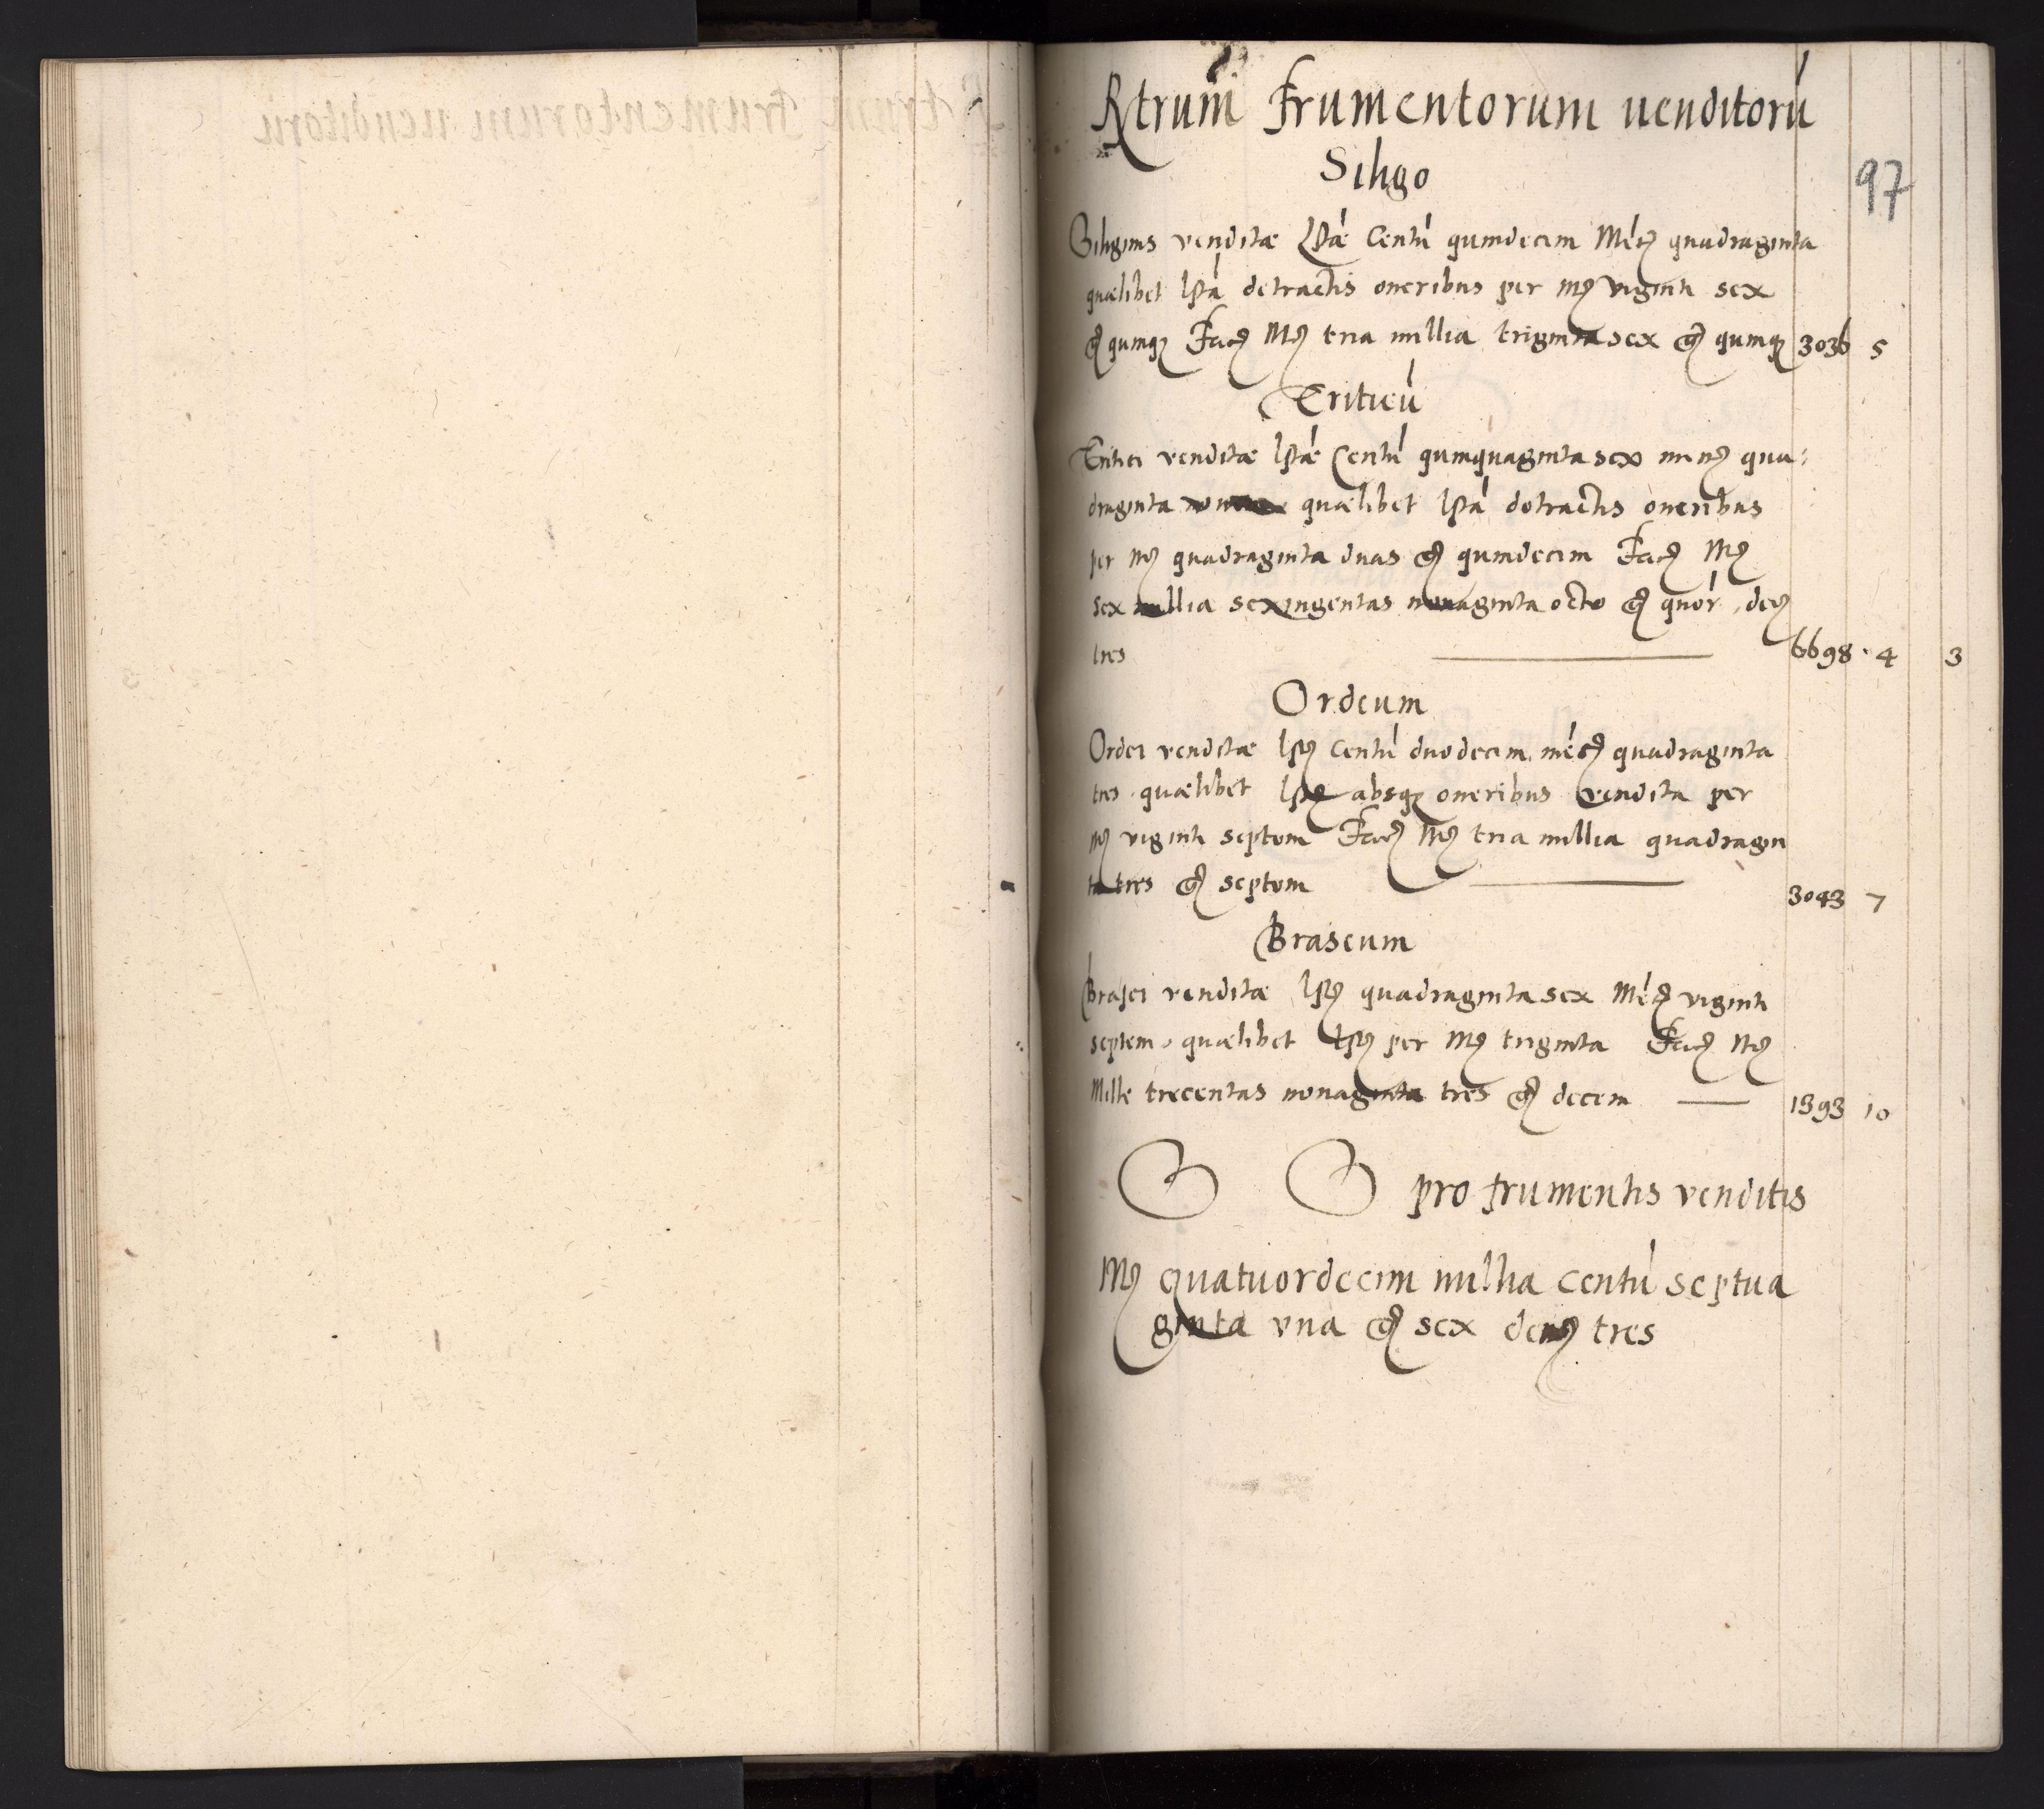 Rtrum frumentorum uenditorú
97
Siligo
Siliginis venditæ lstáe Centú quindecim Mésꝫ quadraginta
quælibet lstá detractis oneribus per mꝫ viginti sex
gꝫ quinqꝫ Facꝫ Mꝫ tria millia triginta sex gꝫ quinqꝫ 3036 5
Triticú
Tritici venditæ lstáe Centú quinquaginta sex qua:
draginta quælibet lstá detractis oneribus
per mꝫ quadraginta duas gꝫ quindecim Facꝫ Mꝫ
sex millia sexingentas nonaginta octo gꝫ quór deꝫ
tres 6698 · 4 3
Ordeum
Ordei venditæ lstꝫ Centú duodecim mésꝫ quadraginta
tres quælibet lstꝫ absqꝫ oneribus vendita per
mꝫ viginti septem Facꝫ Mꝫ tria millia quadragin
ta tres gꝫ septem 3043 7
Braseum
Brasei venditæ lstꝫ quadraginta sex Mésꝫ viginti
septem quælibet lstꝫ per Mꝫ triginta Facꝫ Mꝫ
Mille trecentas nonaginta tres gꝫ decem 1393 10
pro frumentis venditis
Mꝫ quatuordecim millia centú septua
ginta vna gꝫ sex denꝫ tres